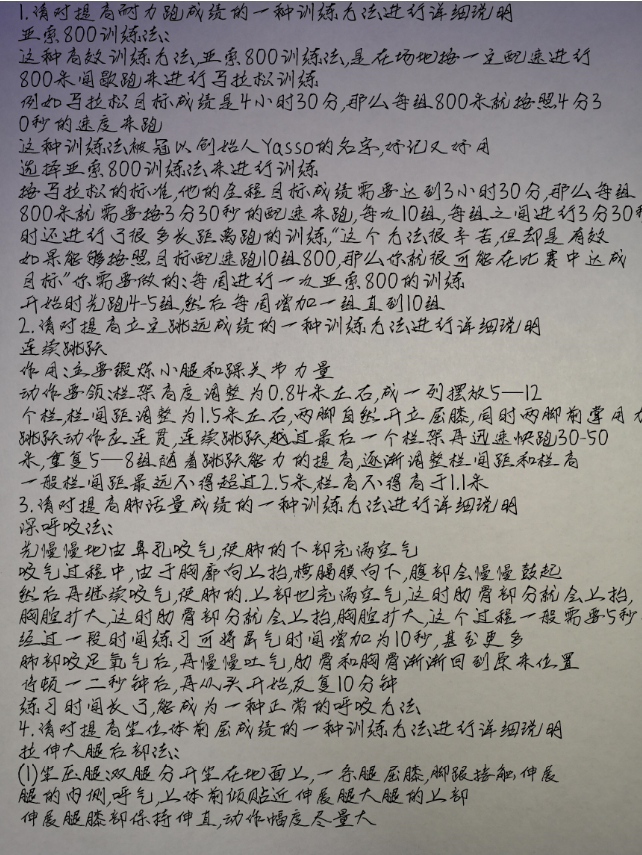 1.请对提高耐力跑成绩的一种训练方法进行详细说明
亚索800训练法:
这种高效训练方法,亚索800训练法,是在场地按一定配速进行
800米间歇跑来进行马拉松训练
例如马拉松目标成绩是4小时30分,那么每组800米就按照4分3
0秒的速度来跑
这种训练法被冠以创始人Yasso的名字,好记又好用
选择亚索800训练法来进行训练
按马拉松的标准,他的全程目标成绩需要达到3小时30分,那么每组
800米就需要按3分30秒的配速来跑,每次10组,每组之间进行3分30秒
时还进行了很多长距离跑的训练,“这个方法很辛苦,但却是有效
如果能够按照目标配速跑10组800,那么你就很可能在比赛中达成
目标”你需要做的:每周进行一次亚索800的训练
开始时先跑4-5组,然后每周增加一组直到10组
2.请对提高立定跳远成绩的一种训练方法进行详细说明
连续跳跃
作用:主要锻炼小腿和踝关节力量
动作要领:栏架高度调整为0.84米左右,成一列摆放5—12
个栏,栏间距调整为1.5米左右,两脚自然开立屈膝,同时两脚前掌用力
跳跃动作应连贯,连续跳跃越过最后一个栏架再迅速快跑30-50
米,重复5—8组随着跳跃能力的提高,逐渐调整栏间距和栏高
一般栏间距最远不得超过2.5米,栏高不得高于1.1米
3.请对提高肺活量成绩的一种训练方法进行详细说明
深呼吸法:
先慢慢地由鼻孔吸气,使肺的下部充满空气
吸气过程中,由于胸廓向上抬,横膈膜向下,腹部会慢慢鼓起
然后再继续吸气,使肺的.上部也充满空气,这时肋骨部分就会上抬,
胸腔扩大,这时肋骨部分就会上抬,胸腔扩大,这个过程一般需要5秒
经过一段时间练习可将屏气时间增加为10秒,甚至更多
肺部吸足氧气后,再慢慢吐气,肋骨和胸骨渐渐回到原来位置
停顿一二秒钟后,再从头开始,反复10分钟
练习时间长了,能成为一种正常的呼吸方法
4.请对提高坐位体前屈成绩的一种训练方法进行详细说明
拉伸大腿后部法:
(1)坐压腿:双腿分开坐在地面上,一条腿屈膝,脚跟接触伸展
腿的内侧,呼气,上体前倾贴近伸展腿大腿的上部
伸展腿膝部保持伸直,动作幅度尽量大